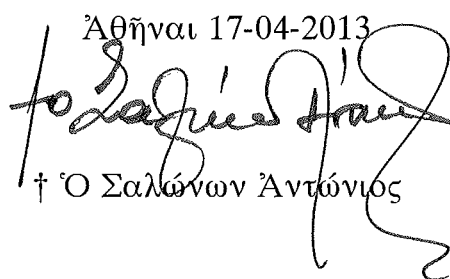 Ἀθῆναι 17-04-2013
† Ὁ Σαλώνων Ἀντώνιος